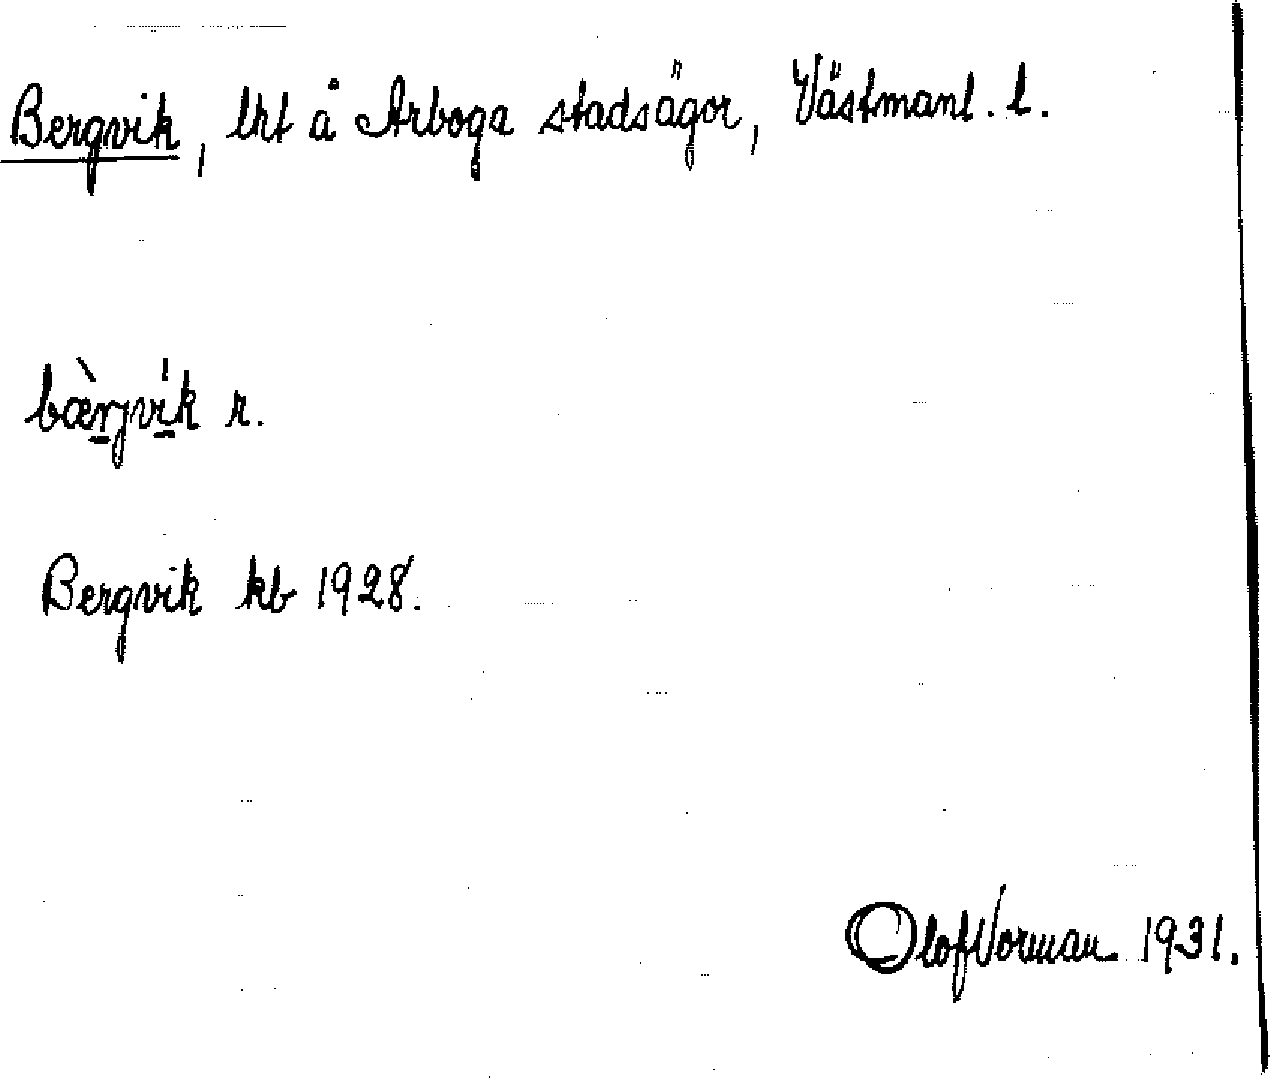 Bergvik, lht å Arboga stadsägor, Västmanl. l.
bæ̀rjvík r.
Bergvik kb 1928.
Olof Norman 1931.